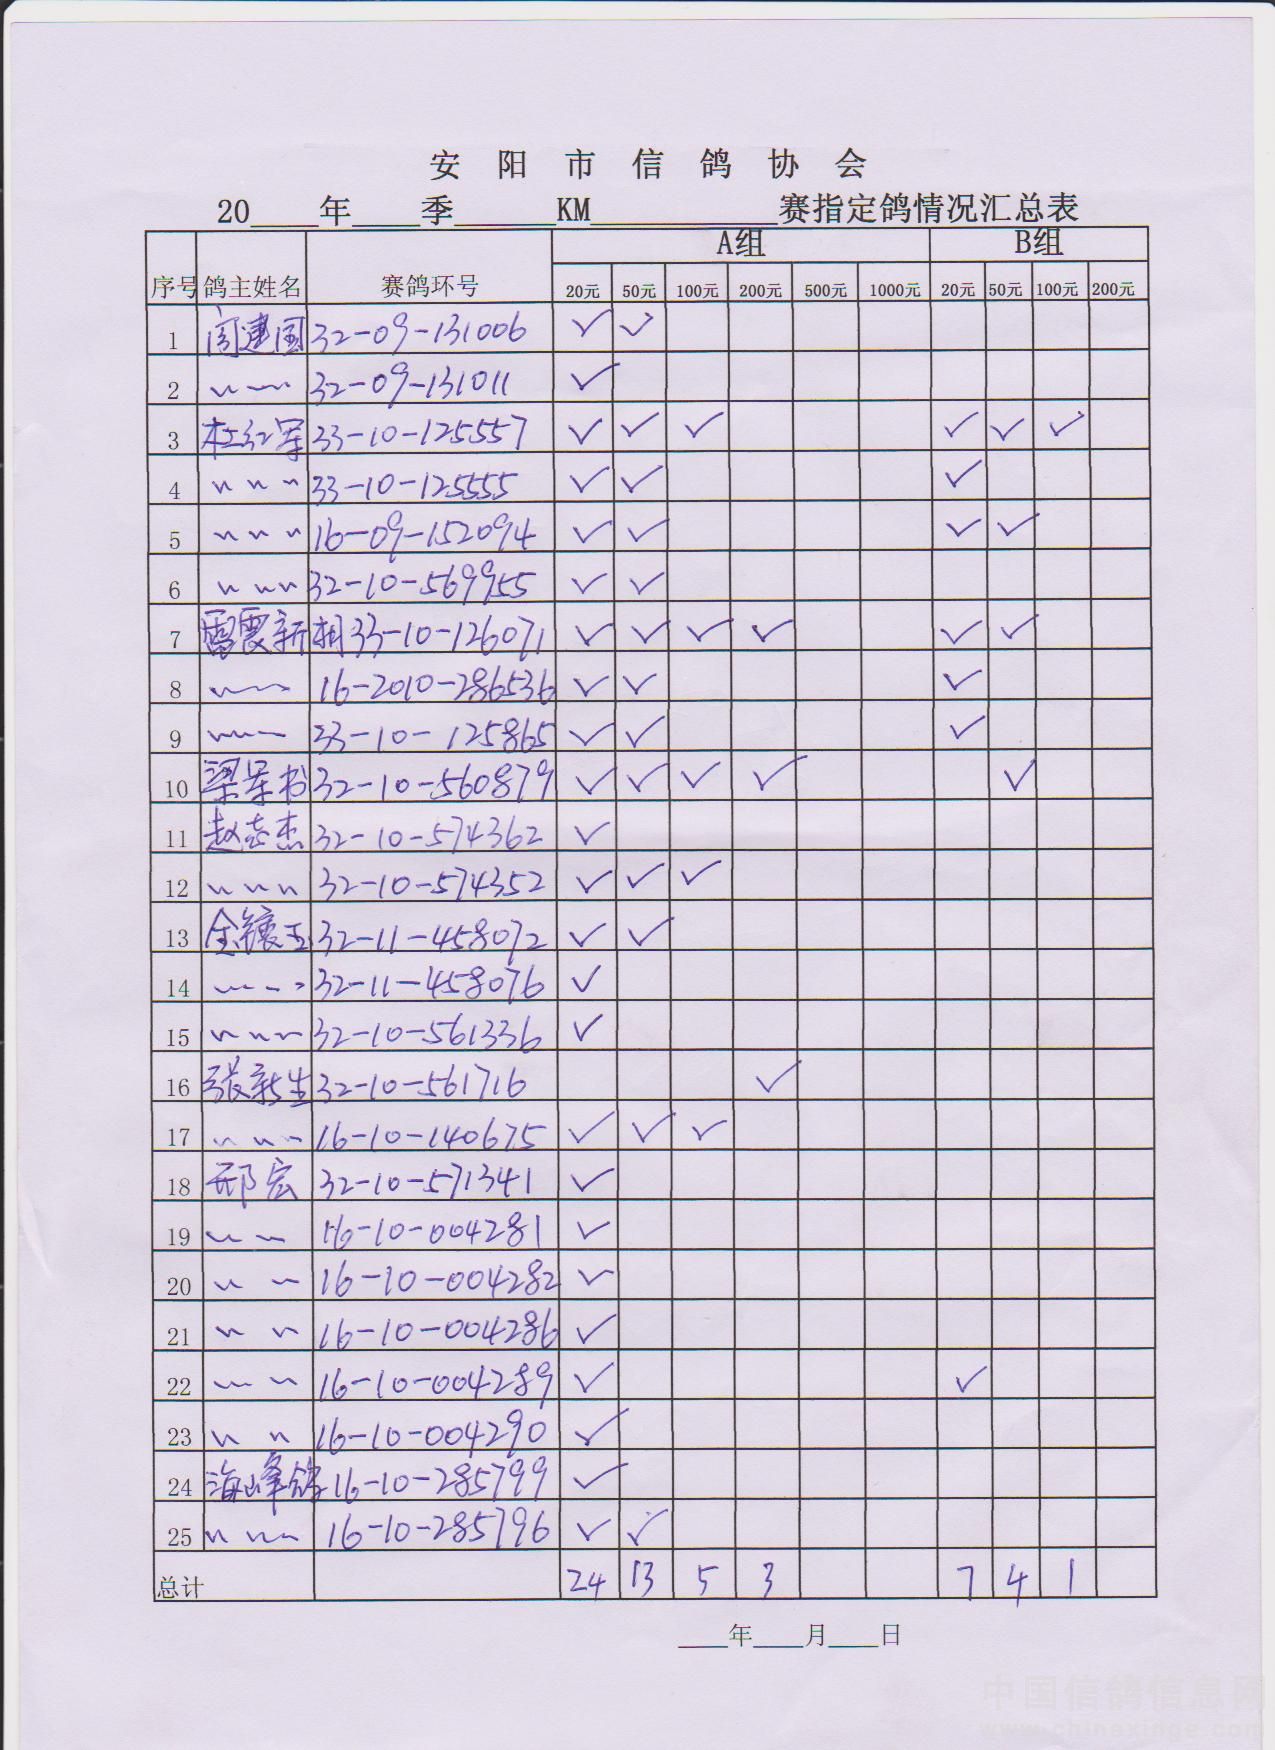 安阳市信鸽协会
20____年____季______KM___________赛指定鸽情况汇总表
序号 鸽主姓名 赛鸽环号 A组 B组
20元 50元 100元 200元 500元 1000元 20元 50元 100元 200元
1 建国 32-09-131006 ✓ ✓
2 〃 〃 32-09-131011 ✓
3 杜红军 33-10-125557 ✓ ✓ ✓ ✓ ✓ ✓
4 〃 〃 〃 33-10-125555 ✓ ✓ ✓
5 〃 〃 〃 16-09-152094 ✓ ✓ ✓ ✓
6 〃 〃 〃 32-10-569955 ✓ ✓
7 新相 33-10-126071 ✓ ✓ ✓ ✓ ✓ ✓
8 〃 〃 16-2010-286536 ✓ ✓ ✓
9 〃 〃 33-10-125865 ✓ ✓ ✓
10 梁 32-10-560879 ✓ ✓ ✓ ✓ ✓
11 赵志杰 32-10-574362 ✓
12 〃 〃 〃 32-10-574352 ✓ ✓ ✓
13 金镶玉 32-11-458072 ✓ ✓
14 〃 〃 〃 32-11-458076 ✓
15 〃 〃 〃 32-10-561336 ✓
16 张新生 32-10-561716 ✓
17 〃 〃 〃 16-10-140675 ✓ ✓ ✓
18 邢宏 32-10-571341 ✓
19 〃 〃 16-10-004281 ✓
20 〃 〃 16-10-004282 ✓
21 〃 〃 16-10-004286 ✓
22 〃 〃 16-10-004289 ✓ ✓
23 〃 〃 16-10-004290 ✓
24 海峰鸽 16-10-285799 ✓
25 〃 〃 〃 16-10-285796 ✓ ✓
总计 24 13 5 3 7 4 1
____年____月____日
中国信鸽信息网
www.chinaxinge.com